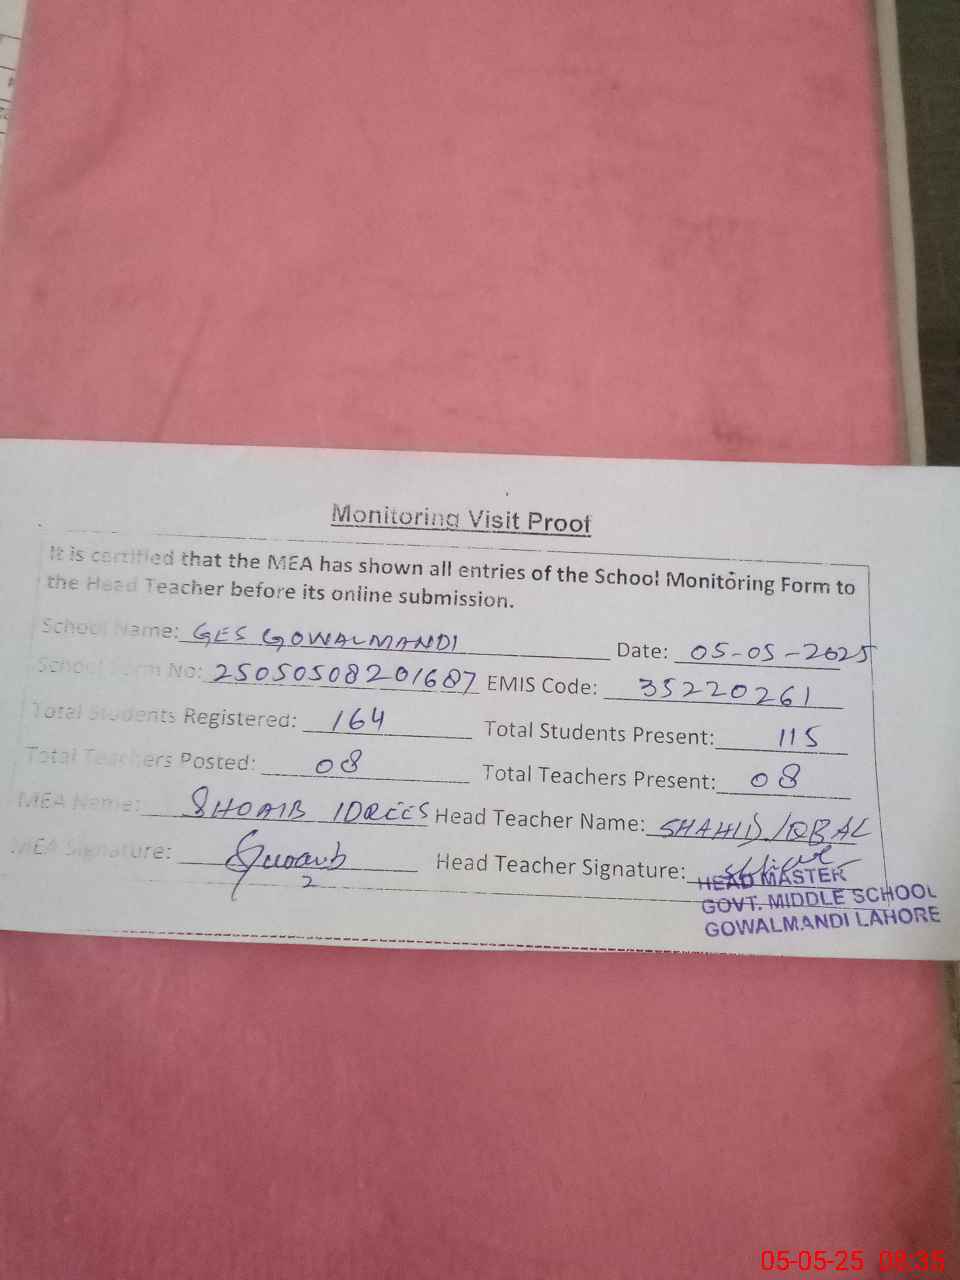 Monitoring Visit Proof
It is certified that the MEA has shown all entries of the School Monitoring Form to
the Head Teacher before its online submission.
School Name: GES GOWALMANDI Date: 05-05-2025
School Form No: 25050508201687 EMIS Code: 35220261
Total Students Registered: 164 Total Students Present: 115
Total Teachers Posted: 08 Total Teachers Present: 08
MEA Name: SHOAIB IDREES Head Teacher Name: SHAHID IQBAL
MEA Signature: Head Teacher Signature:
HEAD MASTER
GOVT. MIDDLE SCHOOL
GOWALMANDI LAHORE
05-05-25 08:35